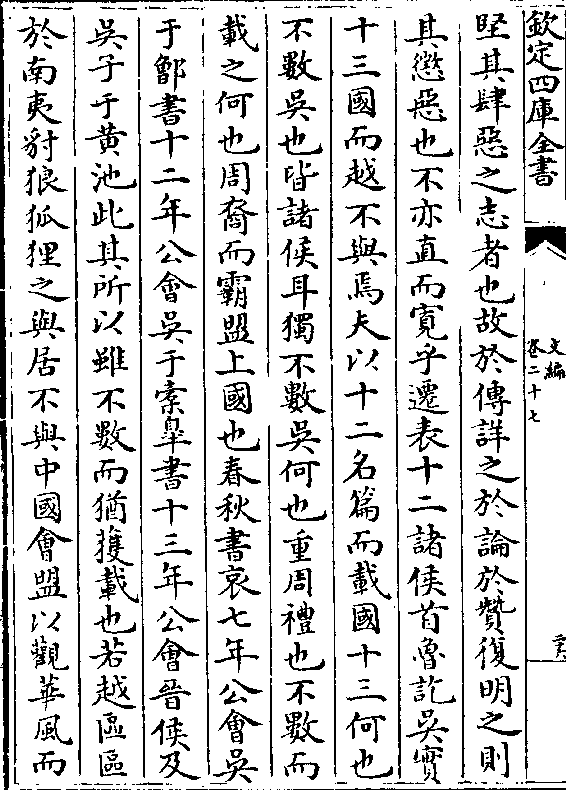 欽定四庫全書
文編
卷二十七
堅其肆惡之志者也故於傳詳之於論於贊復明之則
其懲惡也不亦直而寛乎遷表十二諸侯首魯訖吳實
十三國而越不與焉夫以十二名篇而載國十三何也
不數吳也皆諸侯耳獨不數吳何也重周禮也不數而
載之何也周裔而霸盟上國也春秋書哀七年公會吳
于鄫書十二年公會吳于橐臯書十三年公會晉侯及
吳子于黄池此其所以雖不數而猶獲載也若越區區
於南夷豺狼狐狸之與居不與中國會盟以觀華風而